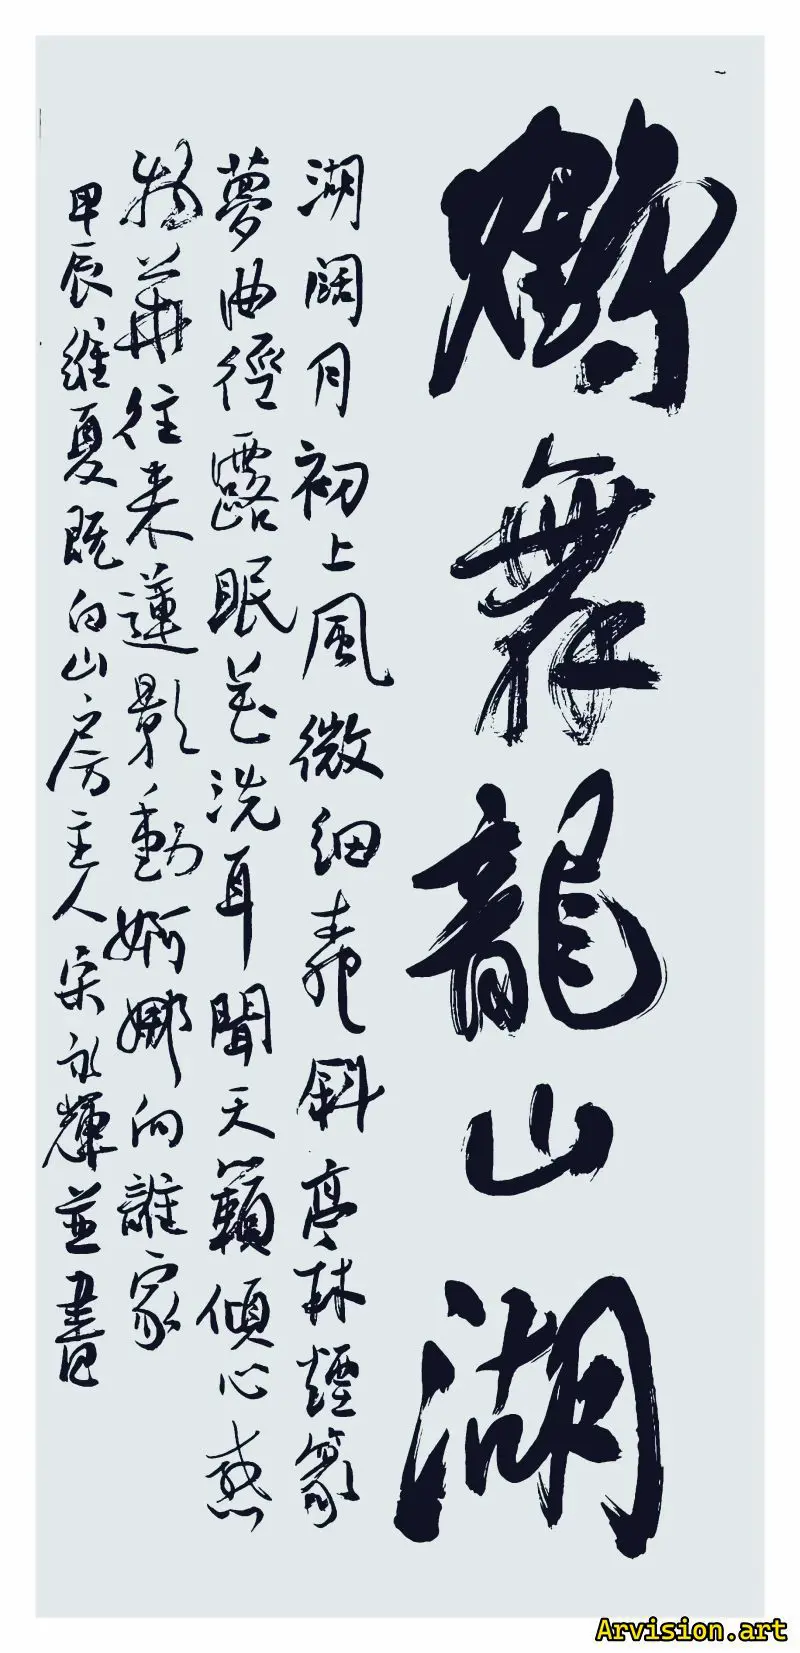 鶴舞龍山湖
湖闊月初上風微細斜亭林煙篆
夢曲徑露眠花洗耳聞天籟傾心感
物華往来蓮影動婀娜向誰家
甲辰維夏既白山房主人宋永輝並書
Arvision.art